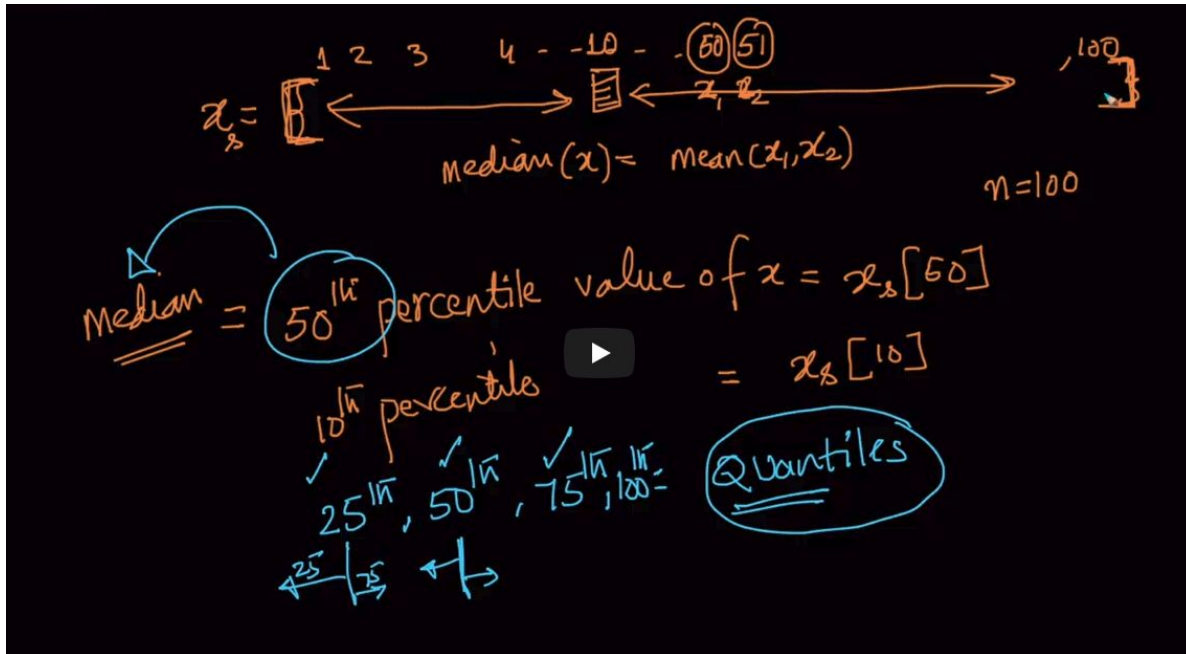 1 2 3 4 - - 10 - - 50 51 , 100
xₛ = [
x₁ x₂
median(x) = mean(x₁, x₂)
n=100
Median = 50th percentile value of x = xₛ[50]
10th percentile = xₛ[10]
25th, 50th, 75th, 100th Quantiles
25 75